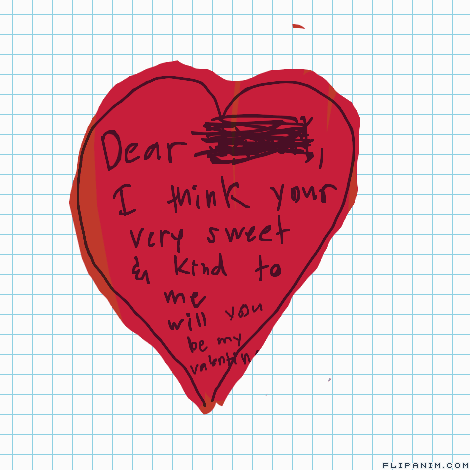 Dear ,
I think your
very sweet
& kind to
me
will you
be my
valentin'
FLIPANIM.COM